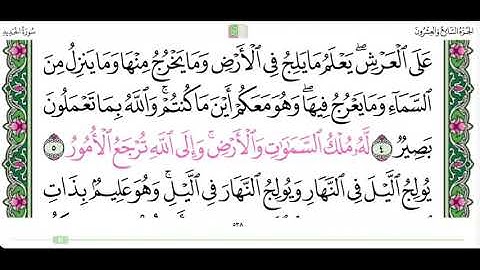 الجزء السابع والعشرون
سورة الحديد
عَلَى ٱلْعَرْشِ ۖ يَعْلَمُ مَا يَلِجُ فِى ٱلْأَرْضِ وَمَا يَخْرُجُ مِنْهَا وَمَا يَنزِلُ مِنَ
ٱلسَّمَآءِ وَمَا يَعْرُجُ فِيهَا ۖ وَهُوَ مَعَكُمْ أَيْنَ مَا كُنتُمْ ۚ وَٱللَّهُ بِمَا تَعْمَلُونَ
بَصِيرٌ ٤ لَّهُۥ مُلْكُ ٱلسَّمَٰوَٰتِ وَٱلْأَرْضِ ۚ وَإِلَى ٱللَّهِ تُرْجَعُ ٱلْأُمُورُ ٥
يُولِجُ ٱلَّيْلَ فِى ٱلنَّهَارِ وَيُولِجُ ٱلنَّهَارَ فِى ٱلَّيْلِ ۚ وَهُوَ عَلِيمٌۢ بِذَاتِ
٥٣٨